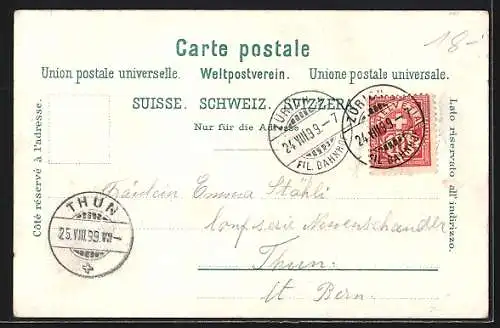 18.-
Carte postale
Union postale universelle. Weltpostverein. Unione postale universale.
SUISSE. SCHWEIZ. SVIZZERA.
Nur für die Adresse
Côté réservé à l'adresse.
Lato riservato all'indirizzo.
ZÜRICH
24.VIII.99.-7
FIL. BAHNHOF
ZÜRICH
24.VIII.99.-7
FIL. BAHNHOF
HELVETIA
THUN
25.VIII.99.
Fräulein Emma Stähli
Thun.
Kt Bern.